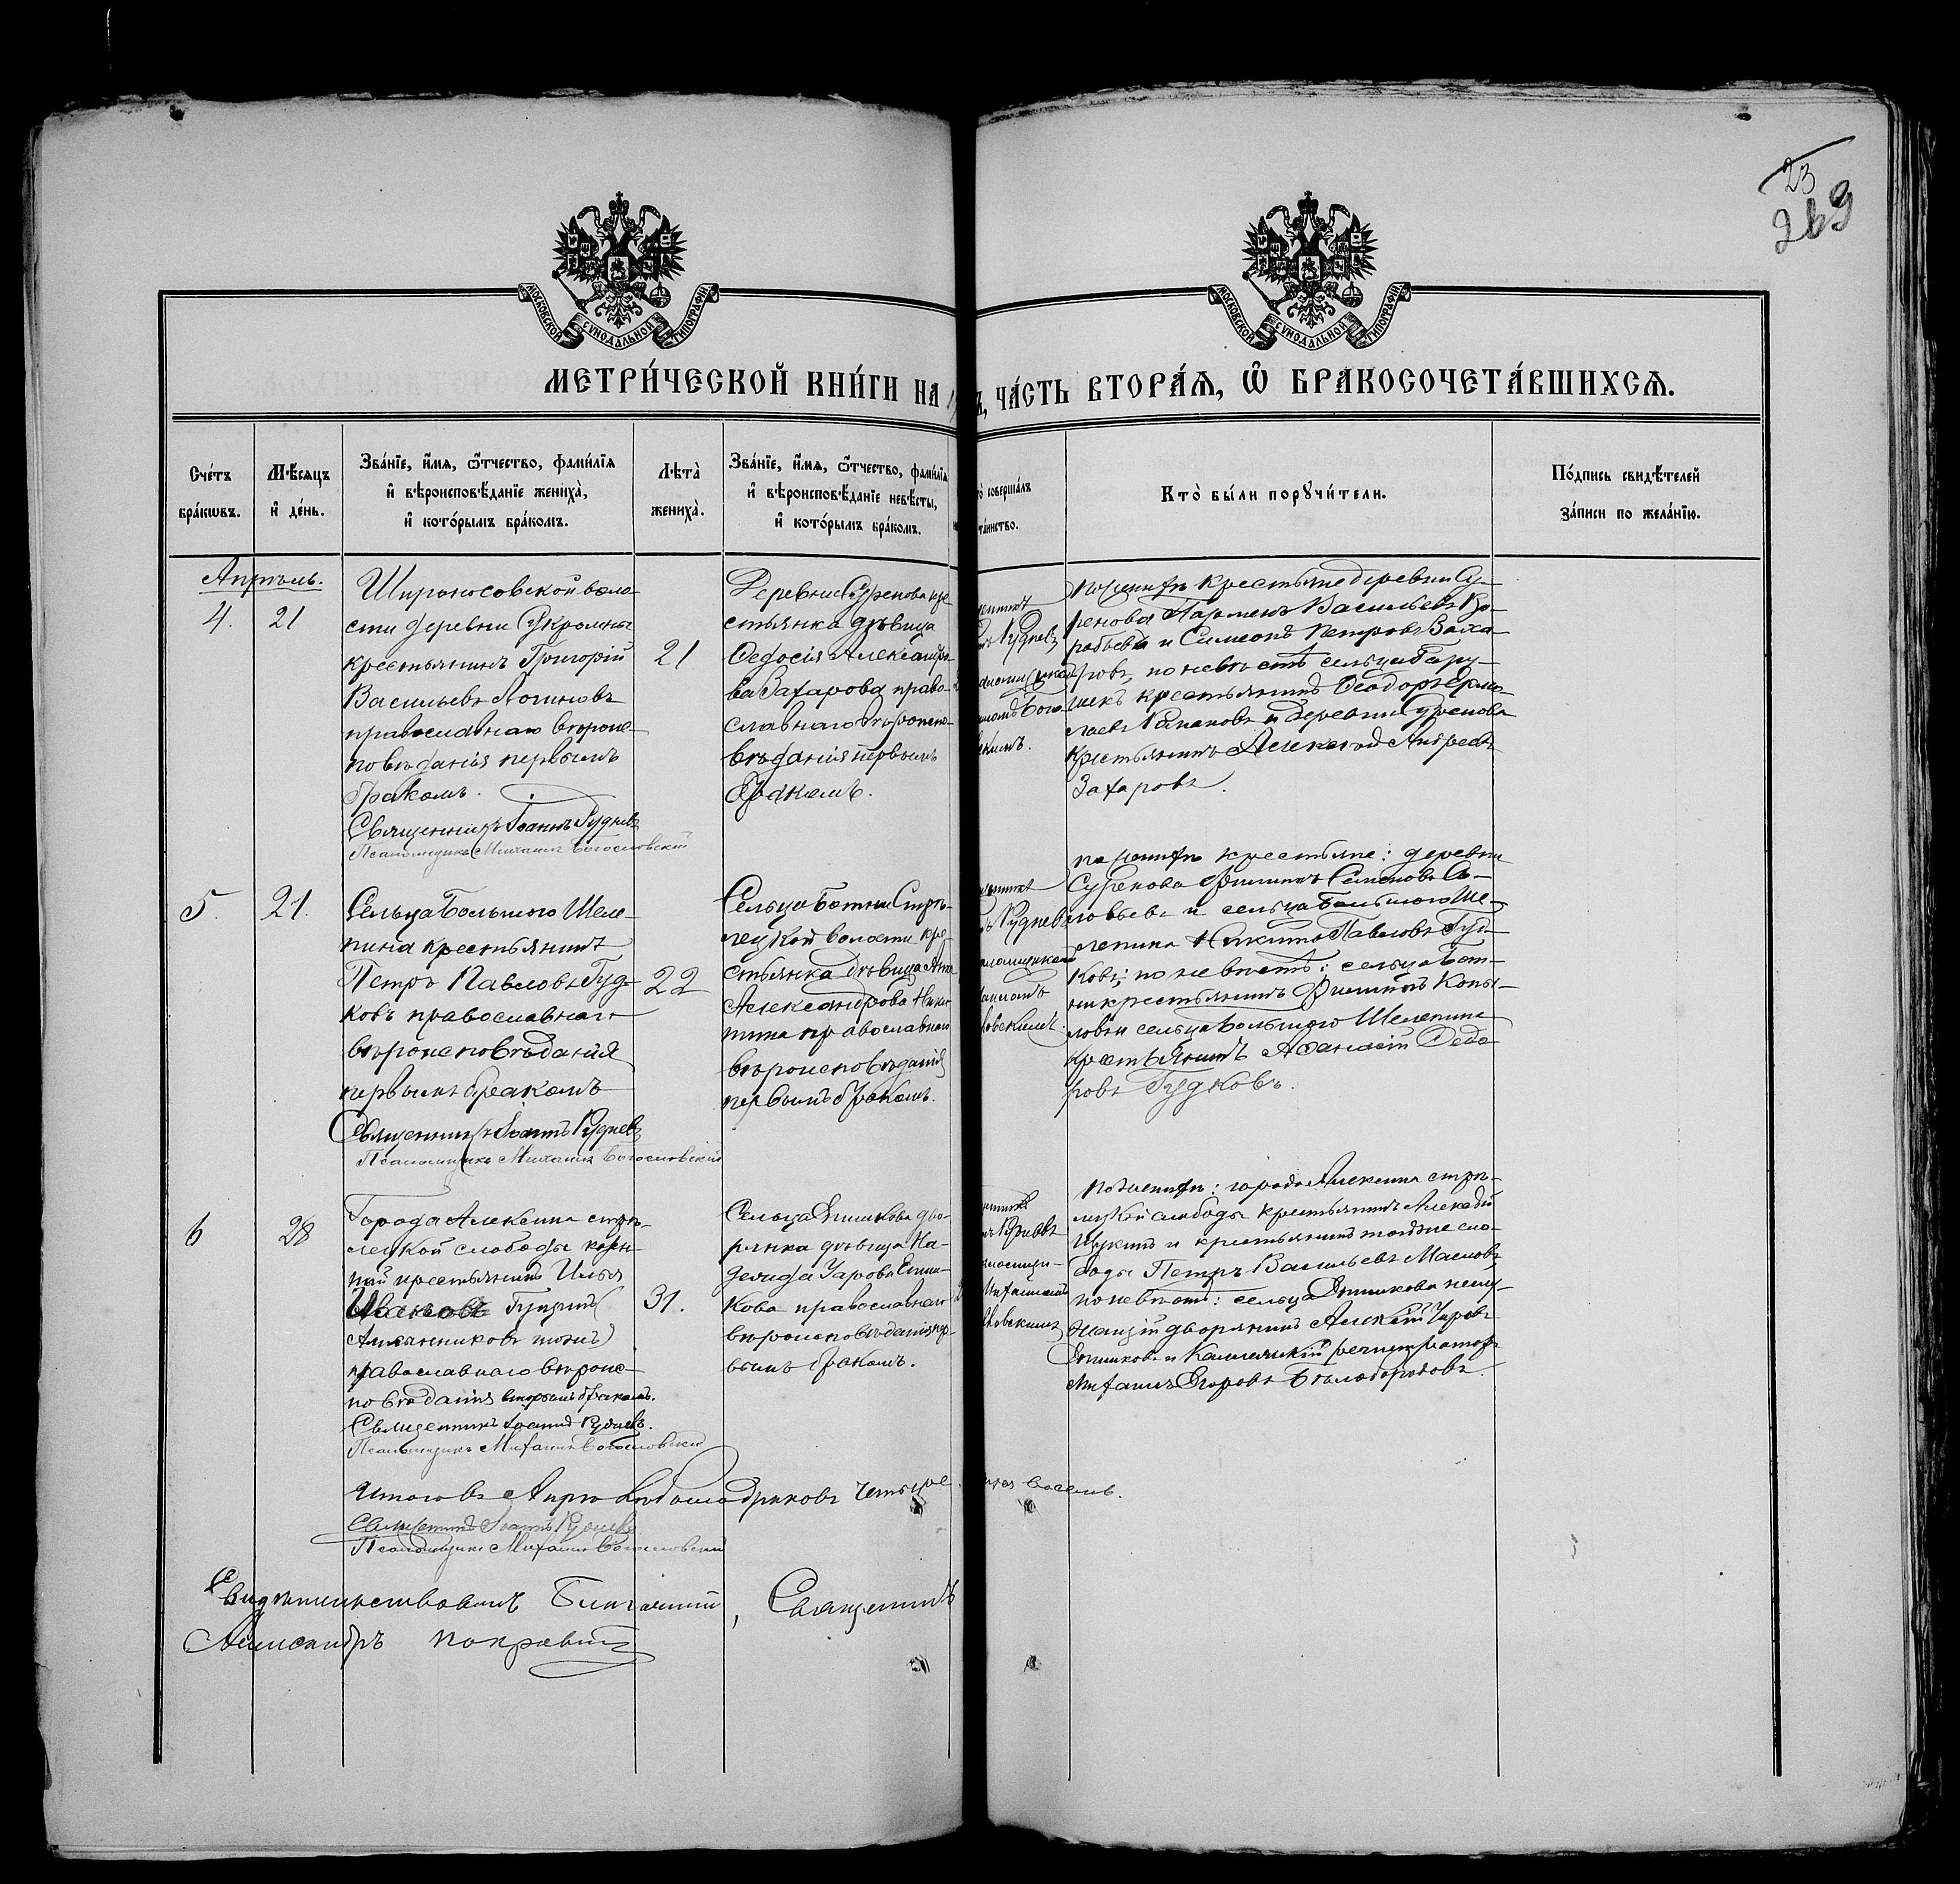 23
269
МОСКОВСКОЙ СѴНОДАЛЬНОЙ ТИПОГРАФІИ
МОСКОВСКОЙ СѴНОДАЛЬНОЙ ТИПОГРАФІИ
МЕТРИ́ЧЕСКОЙ КНИ́ГИ НА
Ъ, ЧА́СТЬ ВТОРА́Я, Ѿ БРАКОСОЧЕТА́ВШИХСѦ.
Сче́тъ
бра́кѡвъ.
Мѣ́сяцъ
и҆ де́нь.
Зва́нїе, и҆́мя, ѻ҆́тчество, фами́лїя
и҆ вѣроисповѣ́данїе жениха̀,
и҆ кото́рымъ бра́комъ.
Лѣта̀
жениха̀.
Зва́нїе, и҆́мя, ѻ҆́тчество, фами́лїя
и҆ вѣроисповѣ́данїе невѣ́сты,
и҆ кото́рымъ бра́комъ.
то̀ соверша́лъ
та́инство.
Кто̀ бы́ли порꙋчи́тели.
По́дпись свидѣ́телей
за́писи по жела́нїю.
Апрѣль.
4.
21
Широносовской воло-
сти деревни
крестьянинъ Григорій
Васильевъ Логиновъ
православнаго вѣроис-
повѣданія первымъ
бракомъ.
Священникъ Іоаннъ Рудневъ
Псаломщикъ Михаилъ Богословскій
21
Деревни Суренова кре-
стьянка дѣвица
Ѳедосія Александро-
ва Захарова право-
славнаго вѣроиспо-
вѣданія первымъ
бракомъ.
Рудневъ
Бого-
скимъ.
по женихѣ крестьяне деревни Су-
ренова Парменъ Васильевъ Во-
робьевъ и Симеонъ Петровъ Заха-
ровъ, по невѣстѣ сельца
крестьянинъ Ѳеодоръ Ермо-
лаевъ и деревни Суренова
крестьянинъ Алексій Андреевъ
Захаровъ.
5.
21.
Сельца Большого Шеле-
пина крестьянинъ
Петръ Павловъ Гуд-
ковъ православнаго
вѣроисповѣданія
первымъ бракомъ
Священникъ Іоаннъ Рудневъ
Псаломщикъ Михаилъ Богословскій
22
Сельца Ботни Стрѣ-
лецкой волости кре-
стьянка дѣвица Анна
Александрова Ники-
тина православнаго
вѣроисповѣданія
первымъ бракомъ.
Рудневъ
ловскимъ.
по женихѣ крестьяне: деревни
Суренова Филиппъ Симоновъ Со-
ловьевъ и сельца Большого Ше-
лепина Никита Павловъ Гуд-
ковъ; по невѣстѣ: сельца Бот-
ни крестьянинъ Филиппъ Копы-
ловъ и сельца Большого Шелепина
крестьянинъ Аѳанасій Ѳедо-
ровъ Гудковъ.
6
28
Города Алексина стрѣ-
лецкой слободы
крестьянинъ Илья
Ивановъ
тожъ)
православнаго вѣроис-
повѣданія вторымъ бракомъ.
Священникъ Іоаннъ Рудневъ.
Псаломщикъ Михаилъ Богословскій
31.
Сельца Епишкова дво-
рянка дѣвица На-
дежда Уарова Епиш-
кова православнаго
вѣроисповѣданія пер-
вымъ бракомъ.
Рудневъ
Михаиломъ
словскимъ
по женихѣ: города Алексина стрѣ-
лецкой слободы крестьянинъ Алексѣй
Щукинъ и крестьянинъ тойже сло-
боды Петръ Васильевъ Масловъ
по невѣстѣ: сельца Епишкова
дворянинъ Алексѣй Уаровъ
Епишковъ и регистраторъ
Михаилъ Егоровъ Бѣлобородовъ.
Итого въ Апрѣлѣ браковъ четыре
восемь.
Священникъ Іоаннъ Рудневъ
Псаломщикъ Михаилъ Богословскій
Свидѣтельствовалъ Благочинный, Священникъ
Александръ Покровскій